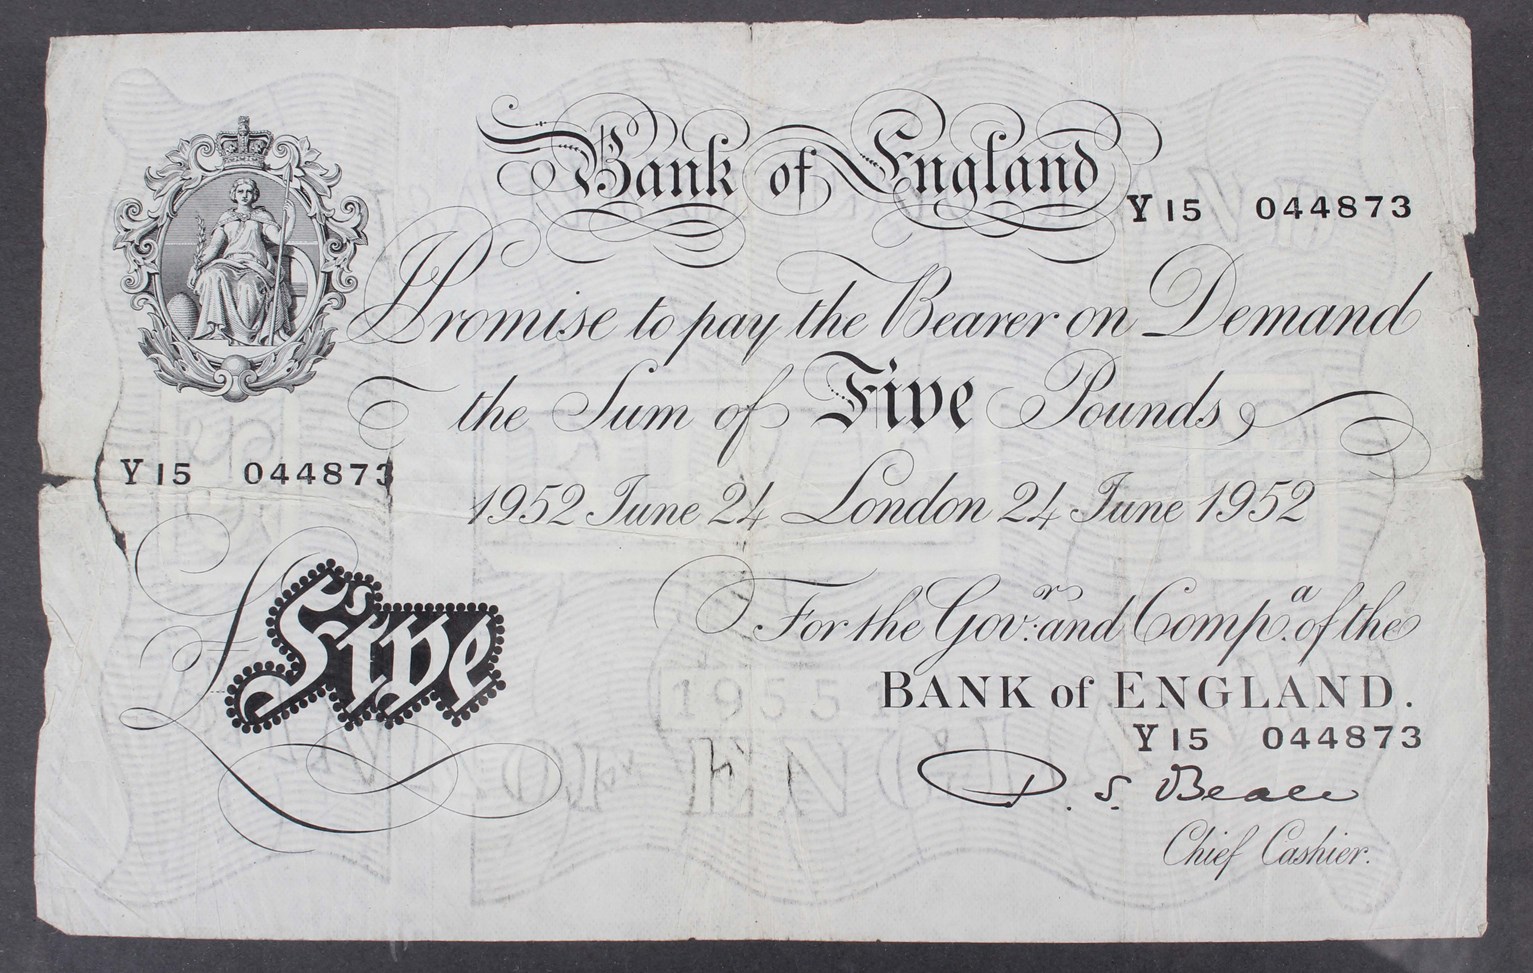 Bank of England
Y15 044873
I Promise to pay the Bearer on Demand
the Sum of Five Pounds
Y15 044873
1952 June 24 London 24 June 1952
For the Govr. and Compa. of the
BANK of ENGLAND.
£ Five
Y15 044873
P. S. Beale
Chief Cashier.